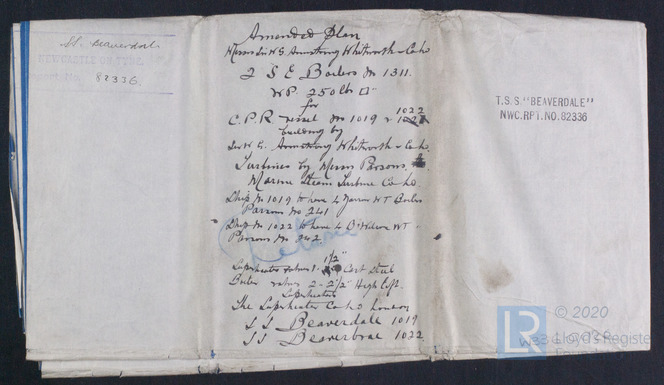 SS. Beaverdale
NEWCASTLE ON TYNE
Report No. 82336
Amended Plan
Messrs Sir W G Armstrong Whitworth & Co Ld
2 S E Boilers No 1311.
WP. 250 lbs □"
for
C.P.R vessel No 1019 & 1022
building by
Sir W G. Armstrong Whitworth & Co Ld.
Turbines by Messrs Parsons
Marine Steam Turbine Co Ld
Ship No 1019 to have 4 Yarrow WT Boilers
Parsons No 241
Ship No 1022 to have 4 B & Wilcox WT
Parsons No 242
Superheater valves 1- 1½" Cast Steel
Boiler valves 2-2½" High Lift.
Superheaters
The Superheater Co Ld London
SS Beaverdale 1019
SS Beaverbrae 1022.
T.S.S "BEAVERDALE"
NWC.RPT.NO.82336
© 2020
LR Lloyd's Register
Foundation